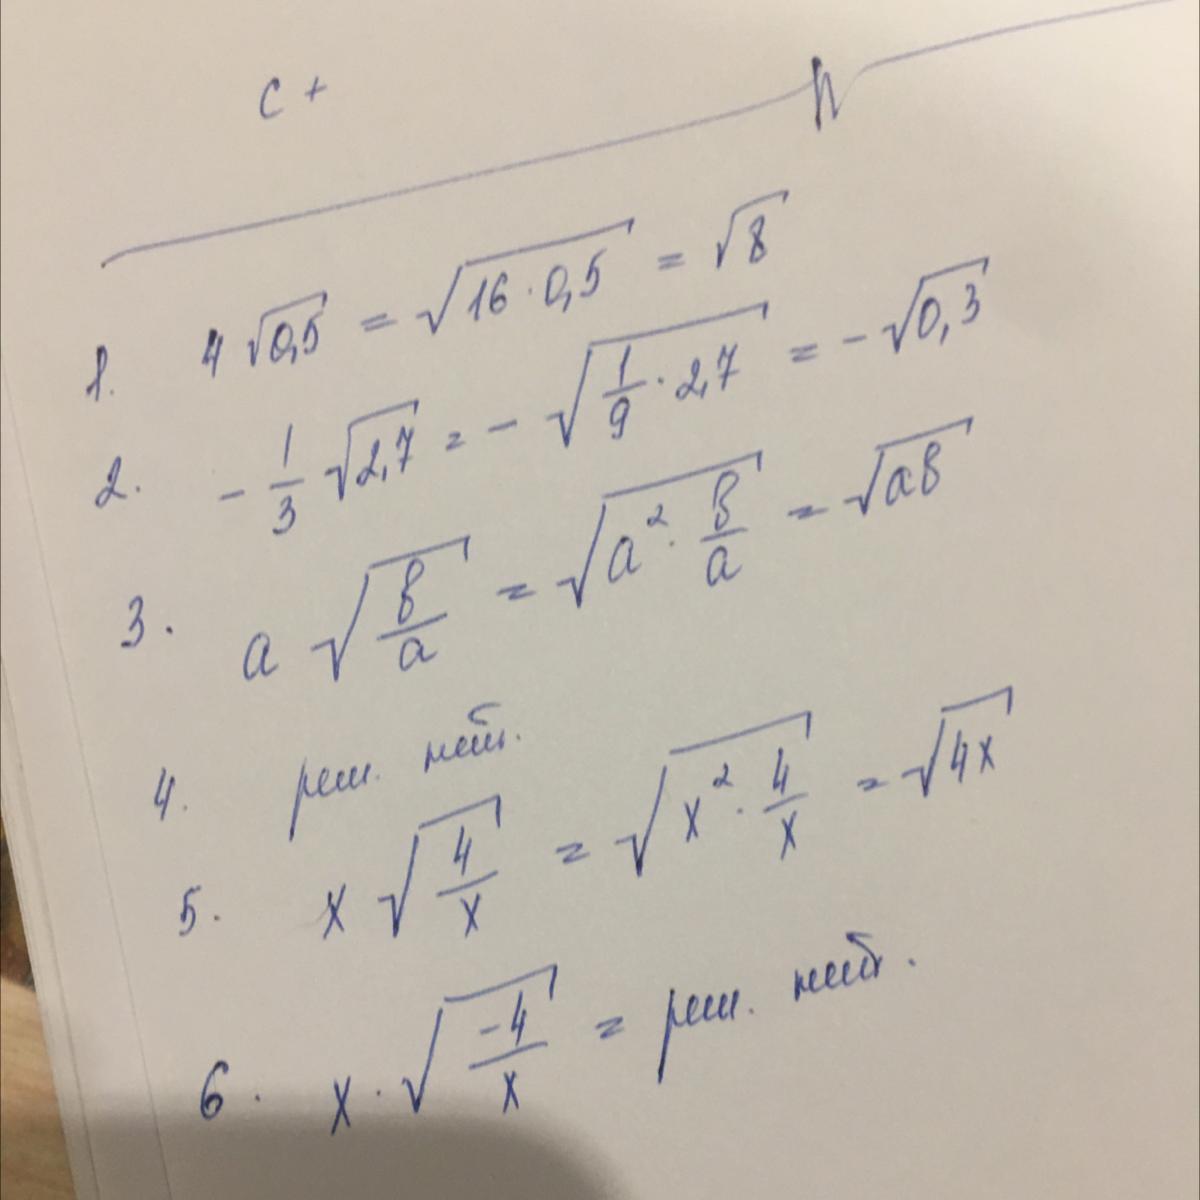 c +
1. 4 √0,5 = √16·0,5 = √8
2. - 1/3 √2,7 = - √1/9 · 2,7 = - √0,3
3. a √в/a = √a² · в/a = √aв
4. реш. нет.
5. x √4/x = √x² · 4/x = √4x
6. x · √-4/x = реш. нет.